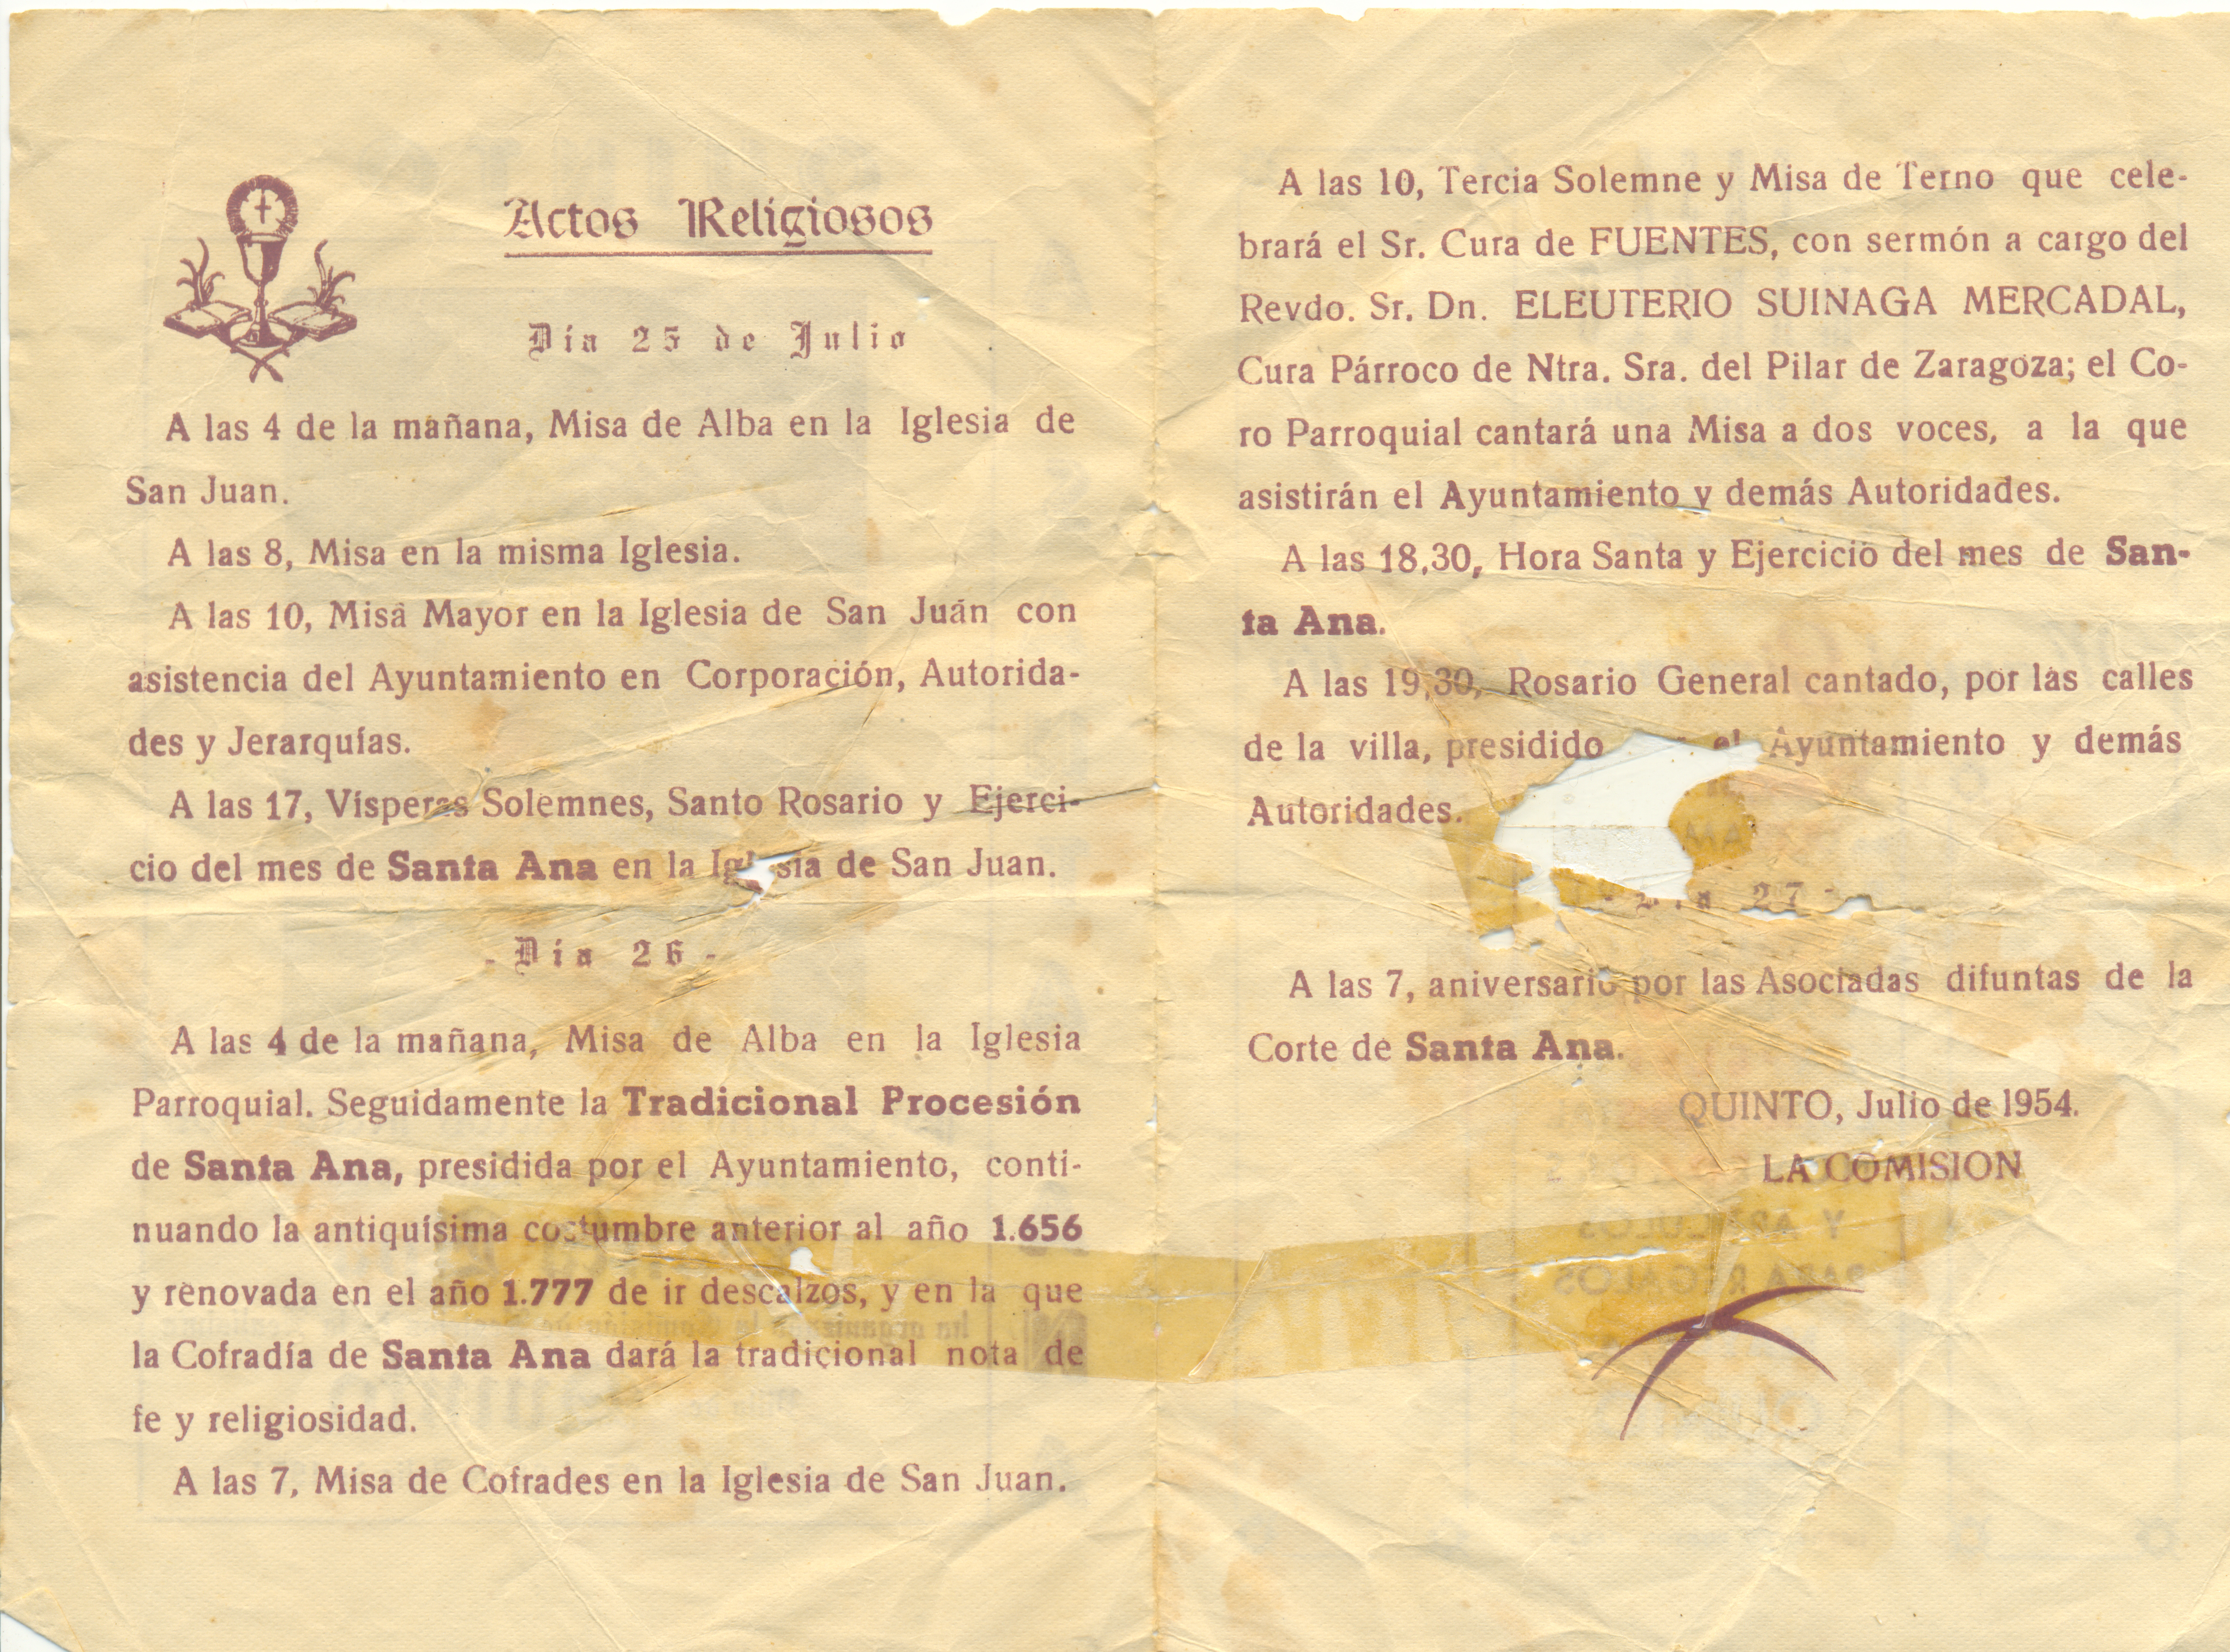 Actos Religiosos
Día 25 de Julio
A las 4 de la mañana, Misa de Alba en la Iglesia de
San Juan.
A las 8, Misa en la misma Iglesia.
A las 10, Misa Mayor en la Iglesia de San Juán con
asistencia del Ayuntamiento en Corporación, Autorida-
des y Jerarquías.
A las 17, Vísperas Solemnes, Santo Rosario y Ejerci-
cio del mes de Santa Ana en la Iglesia de San Juan.
- Día 26 -
A las 4 de la mañana, Misa de Alba en la Iglesia
Parroquial. Seguidamente la Tradicional Procesión
de Santa Ana, presidida por el Ayuntamiento, conti-
nuando la antiquísima costumbre anterior al año 1.656
y renovada en el año 1.777 de ir descalzos, y en la que
la Cofradía de Santa Ana dará la tradicional nota de
fe y religiosidad.
A las 7, Misa de Cofrades en la Iglesia de San Juan.
A las 10, Tercia Solemne y Misa de Terno que cele-
brará el Sr. Cura de FUENTES, con sermón a cargo del
Revdo. Sr. Dn. ELEUTERIO SUINAGA MERCADAL,
Cura Párroco de Ntra. Sra. del Pilar de Zaragoza; el Co-
ro Parroquial cantará una Misa a dos voces, a la que
asistirán el Ayuntamiento y demás Autoridades.
A las 18,30, Hora Santa y Ejercicio del mes de San-
ta Ana.
A las 19,30, Rosario General cantado, por las calles
de la villa, presidido el Ayuntamiento y demás
Autoridades.
- Día 27 -
A las 7, aniversario por las Asociadas difuntas de la
Corte de Santa Ana.
QUINTO, Julio de 1954.
LA COMISION